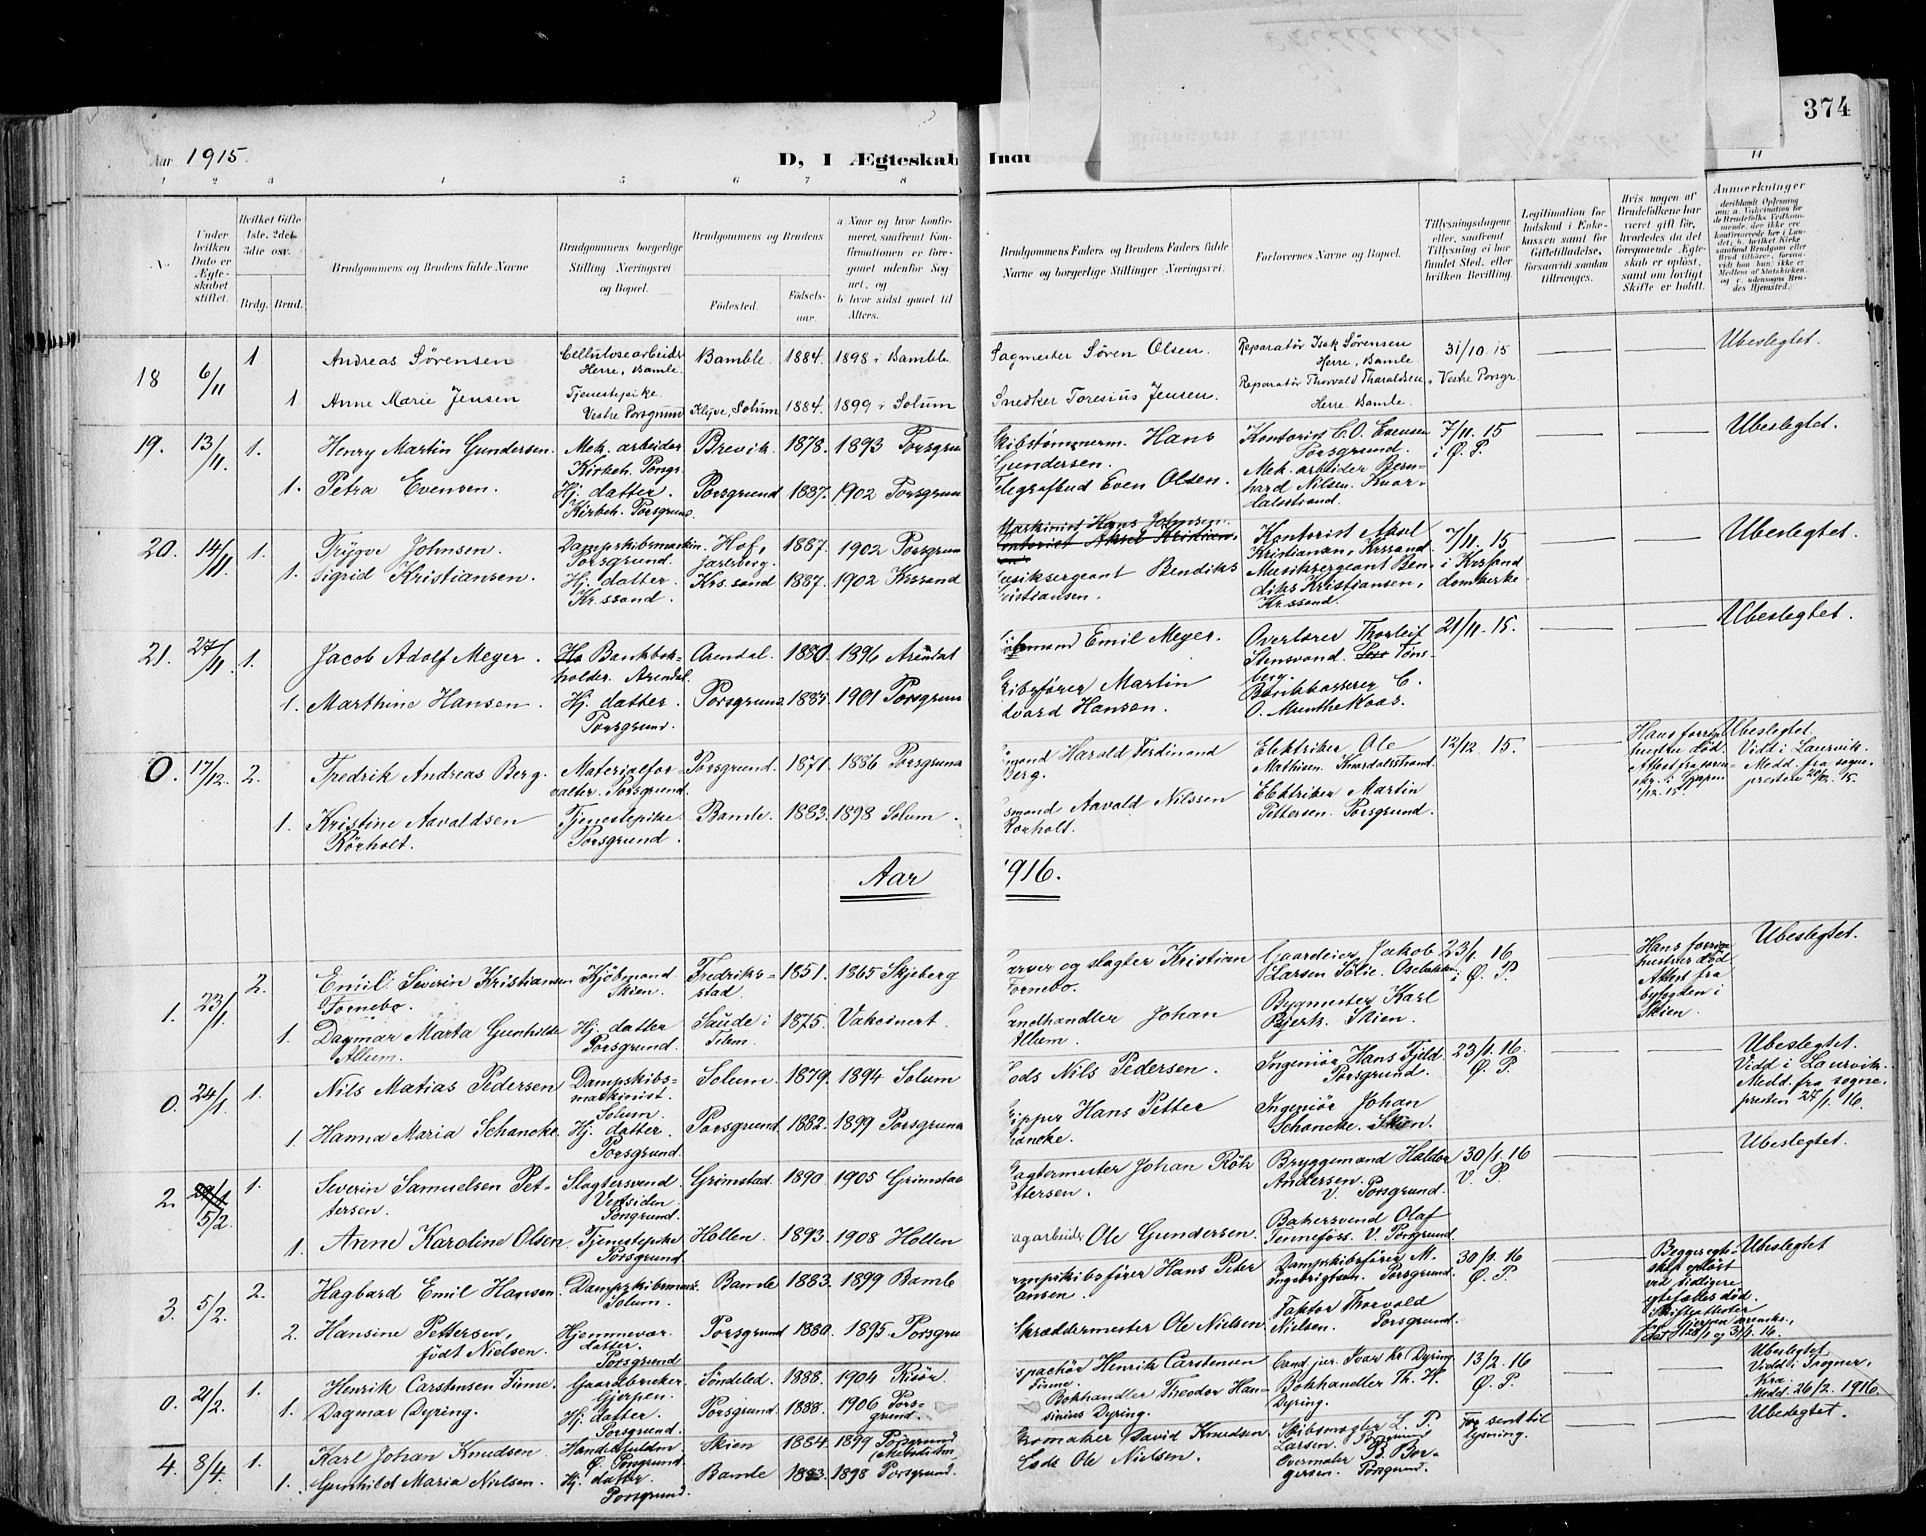 374
Aar 1915.
D, I Ægteskab
1 2 3 4 5 6 7 8 11
Under hvilken Dato er Ægteskabet stiftet.
Hvilket Gifte 1ste. 2det 3die osv.
Brdg. Brud.
Brudgommens og Brudens fulde Navne
Brudgommens borgerlige Stilling Næringsvei og Bopæl.
Brudgommens og Brudens
Fødested.
Fødselsaar.
a Naar og hvor konfirmeret, saafremt Konfirmationen er foregaaet udenfor Sognet, og
b hvor sidst gaaet til Alters.
Brudgommens Faders og Brudens Faders fulde Navne og borgerlige Stillinger Næringsvei.
Forlovernes Navne og Bopæl.
Tillysningsdagene eller, saafremt Tillysning ei har fundet Sted, efter hvilken Bevilling.
Legitimation for Indskud i Enkekassen samt for Giftetilladelse, forsaavidt saadan tiltrænges.
Hvis nogen af Brudefolkene har været gift før, hvorledes da det foregaaende Ægteskab er opløst, samt om lovligt Skifte er holdt.
Anmerkninger
18 6/11 1 Andreas Sørensen Cellulosearbeider Herre, Bamble. Bamble. 1884. 1898 i Bamble Sagmester Søren Olsen. Reparatør Isak Sørensen Herre, Bamle 31/10 15 Ubeslegtet.
1 Anne Marie Jensen Tjenestepike Vestre Porsgrund Klyve, Solum 1884. 1899 i Solum Snedker Toresius Jensen. Reparatør Thorvald Tharaldsen, Herre. Bamble. Vestre Porsgr
19. 13/11 1. Henry Martin Gundersen. Mek. arbeider Kirkeh. Porsgr. Brevik. 1878. 1893 Porsgrun Skibstømmerm. Hans Gundersen. Kontorist C. O. Evensen Porsgrund. 7/11. 15 i Ø. P. Ubeslegtet.
1. Petra Evensen. Hj. datter. Kirkeh. Porsgrund. Porsgrund 1887. 1902 Porsgrun Telegrafbud Even Olsen. Mek. arbeider Bernhard Nilsen. Knardalsstrand.
20. 14/11 1. Trygve Johnsen. Dampskibsmaskin. Porsgrund. Hof, Jarlsberg. 1887. 1902 Porsgrun Maskinist Hans Johnsen. Kontorist Aksel Kristiansen, Krssand 7/11. 15 i Krssand domkerke Ubeslegtet.
1. Sigrid Kristiansen. Hj. datter. Kr.ssand. Krs.sand 1887. 1902 Krssand Musiksergeant Bendiks Kristiansen. Musiksergeant Bendiks Kristiansen, Krssand.
21. 27/11 1. Jacob Adolf Meyer. Bankbokholder. Arendal. Arendal. 1880. 1896 Arendal Emil Meyer. Overlærer Thorleif Stensvand. Tønsberg. 21/11. 15. Ubeslegtet.
1. Marthine Hansen. Hj. datter. Porsgrund. Porsgrund 1885. 1901 Porsgrun Skibsfører Martin Edvard Hansen. Bankkasserer C. O. Munthe Kaas.
0. 17/12. 2. Fredrik Andreas Berg. Materialforvalter. Porsgrund. Porsgrund. 1871. 1886 Porsgrund Harald Ferdinand Berg. Elektriker Ole Mathisen. Knardalsstrand 12/12 15. Hans forrige hustru død. Attest fra sorenskr. i Gjerpen 1/12. 15. Ubeslegtet Vidd i Laurvik. Medd. fra sognepresten 20/12. 15.
1. Kristine Aavaldsen Rörholt. Tjenestepike. Porsgrund. Bamle. 1883. 1898 Solum. Aavald Nilssen Rorholt. Elektriker Martin Pettersen. Porsgrund.
Aar 1916.
1. 23/1. 2. Emil Severin Kristiansen Fornebo. Kjöbmand Skien. Fredrikstad. 1851. 1865 Skjeberg Garver og slagter Kristian Fornebo. Gaardeier Jakob Larsen Sølie. Osebakken 23/1. 16 i Ø. P Hans forrige hustru død Attest fra byfogden i Skien. Ubeslegtet.
1. Dagmar Marta Gunhilde Allum. Hj. datter Porsgrund. Saude i Telem. 1875. Vaksinert. Landhandler Johan Allum. Bygmester Karl Bjerk. Skien.
0. 24/1. 1. Nils Matias Pedersen Dampskibsmaskinist. Solum. Solum. 1879. 1894 Solum Lods Nils Pedersen. Ingeniør Hans Fjeld. Porsgrund. 23/1. 16. Ø. P Ubeslegtet. Vidd i Laurvik. Medd. fra sognepresten 24/1. 16.
1. Hanna Maria Schancke Hj. datter. Porsgrund. Porsgrund. 1882. 1899 Porsgrund Skipper Hans Petter Schancke. Ingeniør Johan Schancke. Skien.
2. 5/2. 1. Severin Samuelsen Pettersen. Slagtersvend Vestsiden Porsgrund. Grimstad. 1890 1905 Grimstad Johan Pettersen. Bryggemand Haldor Andersen. V. Porsgrund. 30/1. 16 V. P. Ubeslegtet.
1. Anne Karoline Olsen. Tjenestepike Porsgrund. Hollen. 1893. 1908 Hollen Sagarbeider Ole Gundersen. Bakersvend Olaf Tenneföss. V. Porsgrund.
3. 5/2. 2. Hagbard Emil Hansen. Solum. Bamle 1883. 1899 Bamle Dampskibsfører Hans Peter Hansen. Dampskibsfører M. Ingebrigtsen. Porsgrund. 30/1. 16 Ø. P. Begges egteskap opløst ved tidligere egtefælles død. Ubeslegtet
2. Hansine Pettersen, født Nielsen. Hjemmevær. datter. Porsgrund Porsgrund 1880. 1895 Porsgru Skræddermester Ole Nielsen. Faktor Thorvald Nielsen. Porsgrund.
0. 21/2. 1. Henrik Carstensen Finne. Gaardbruker Gjerpen. Söndeled. 1888. 1904 Risör. Henrik Carstensen Finne. Cand jur. Ivar Kr. Dyring. 13/2. 16 Ø. P. Ubeslegtet Viddd i Kra. Medd. 26/2. 1916.
1. Dagmar Dyring. Hj. datter. Porsgrund. Porsgrund. 1888. 1906 Porsgrund. Bokhandler Theodor Hansinius Dyring. Bokhandler Th. H. Dyring.
4. 8/4. 1. Karl Johan Knudsen. Ø. Porsgrund. Skien 1884. 1899 Porsgrund David Knudsen. Skibsmægler L. P. Larsen. Porsgrund For sent til lysning. Ubeslegtet.
1. Gunhild Maria Nielsen. Hj. datter. Porsgrund. Bamle 1883. 1898 Porsgrund. Lods Ole Nielsen. Overmaler B. Borgersen. Porsgrund.